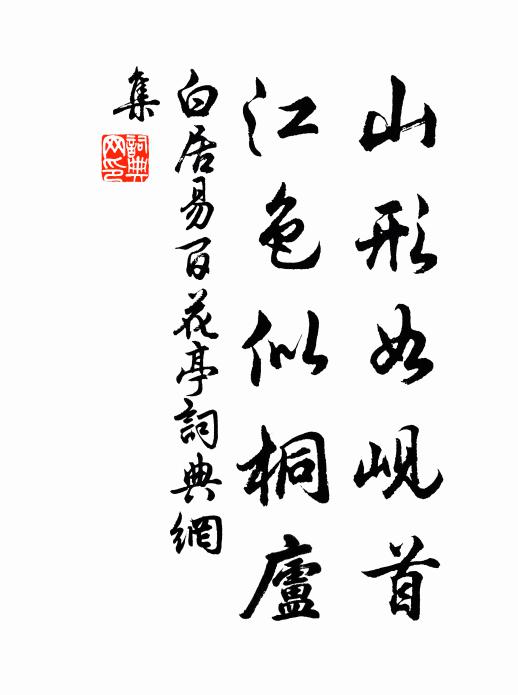 山形如峴首
江色似桐廬
白居易百花亭詞典網
集
詞典
网印